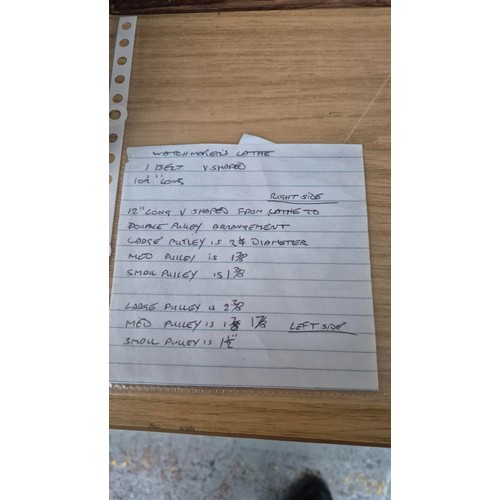 WATCHMAKER'S LATHE
1 BELT V SHAPED
10½" LONG
RIGHT SIDE
12" LONG V SHAPED FROM LATHE TO
DOUBLE PULLEY ARRANGEMENT
LARGE PULLEY IS 2¼ DIAMETER
MED PULLEY IS 1⅞
SMALL PULLEY IS 1⅜
LARGE PULLEY IS 2⅜
MED PULLEY IS 1⅞ LEFT SIDE
SMALL PULLEY IS 1½"